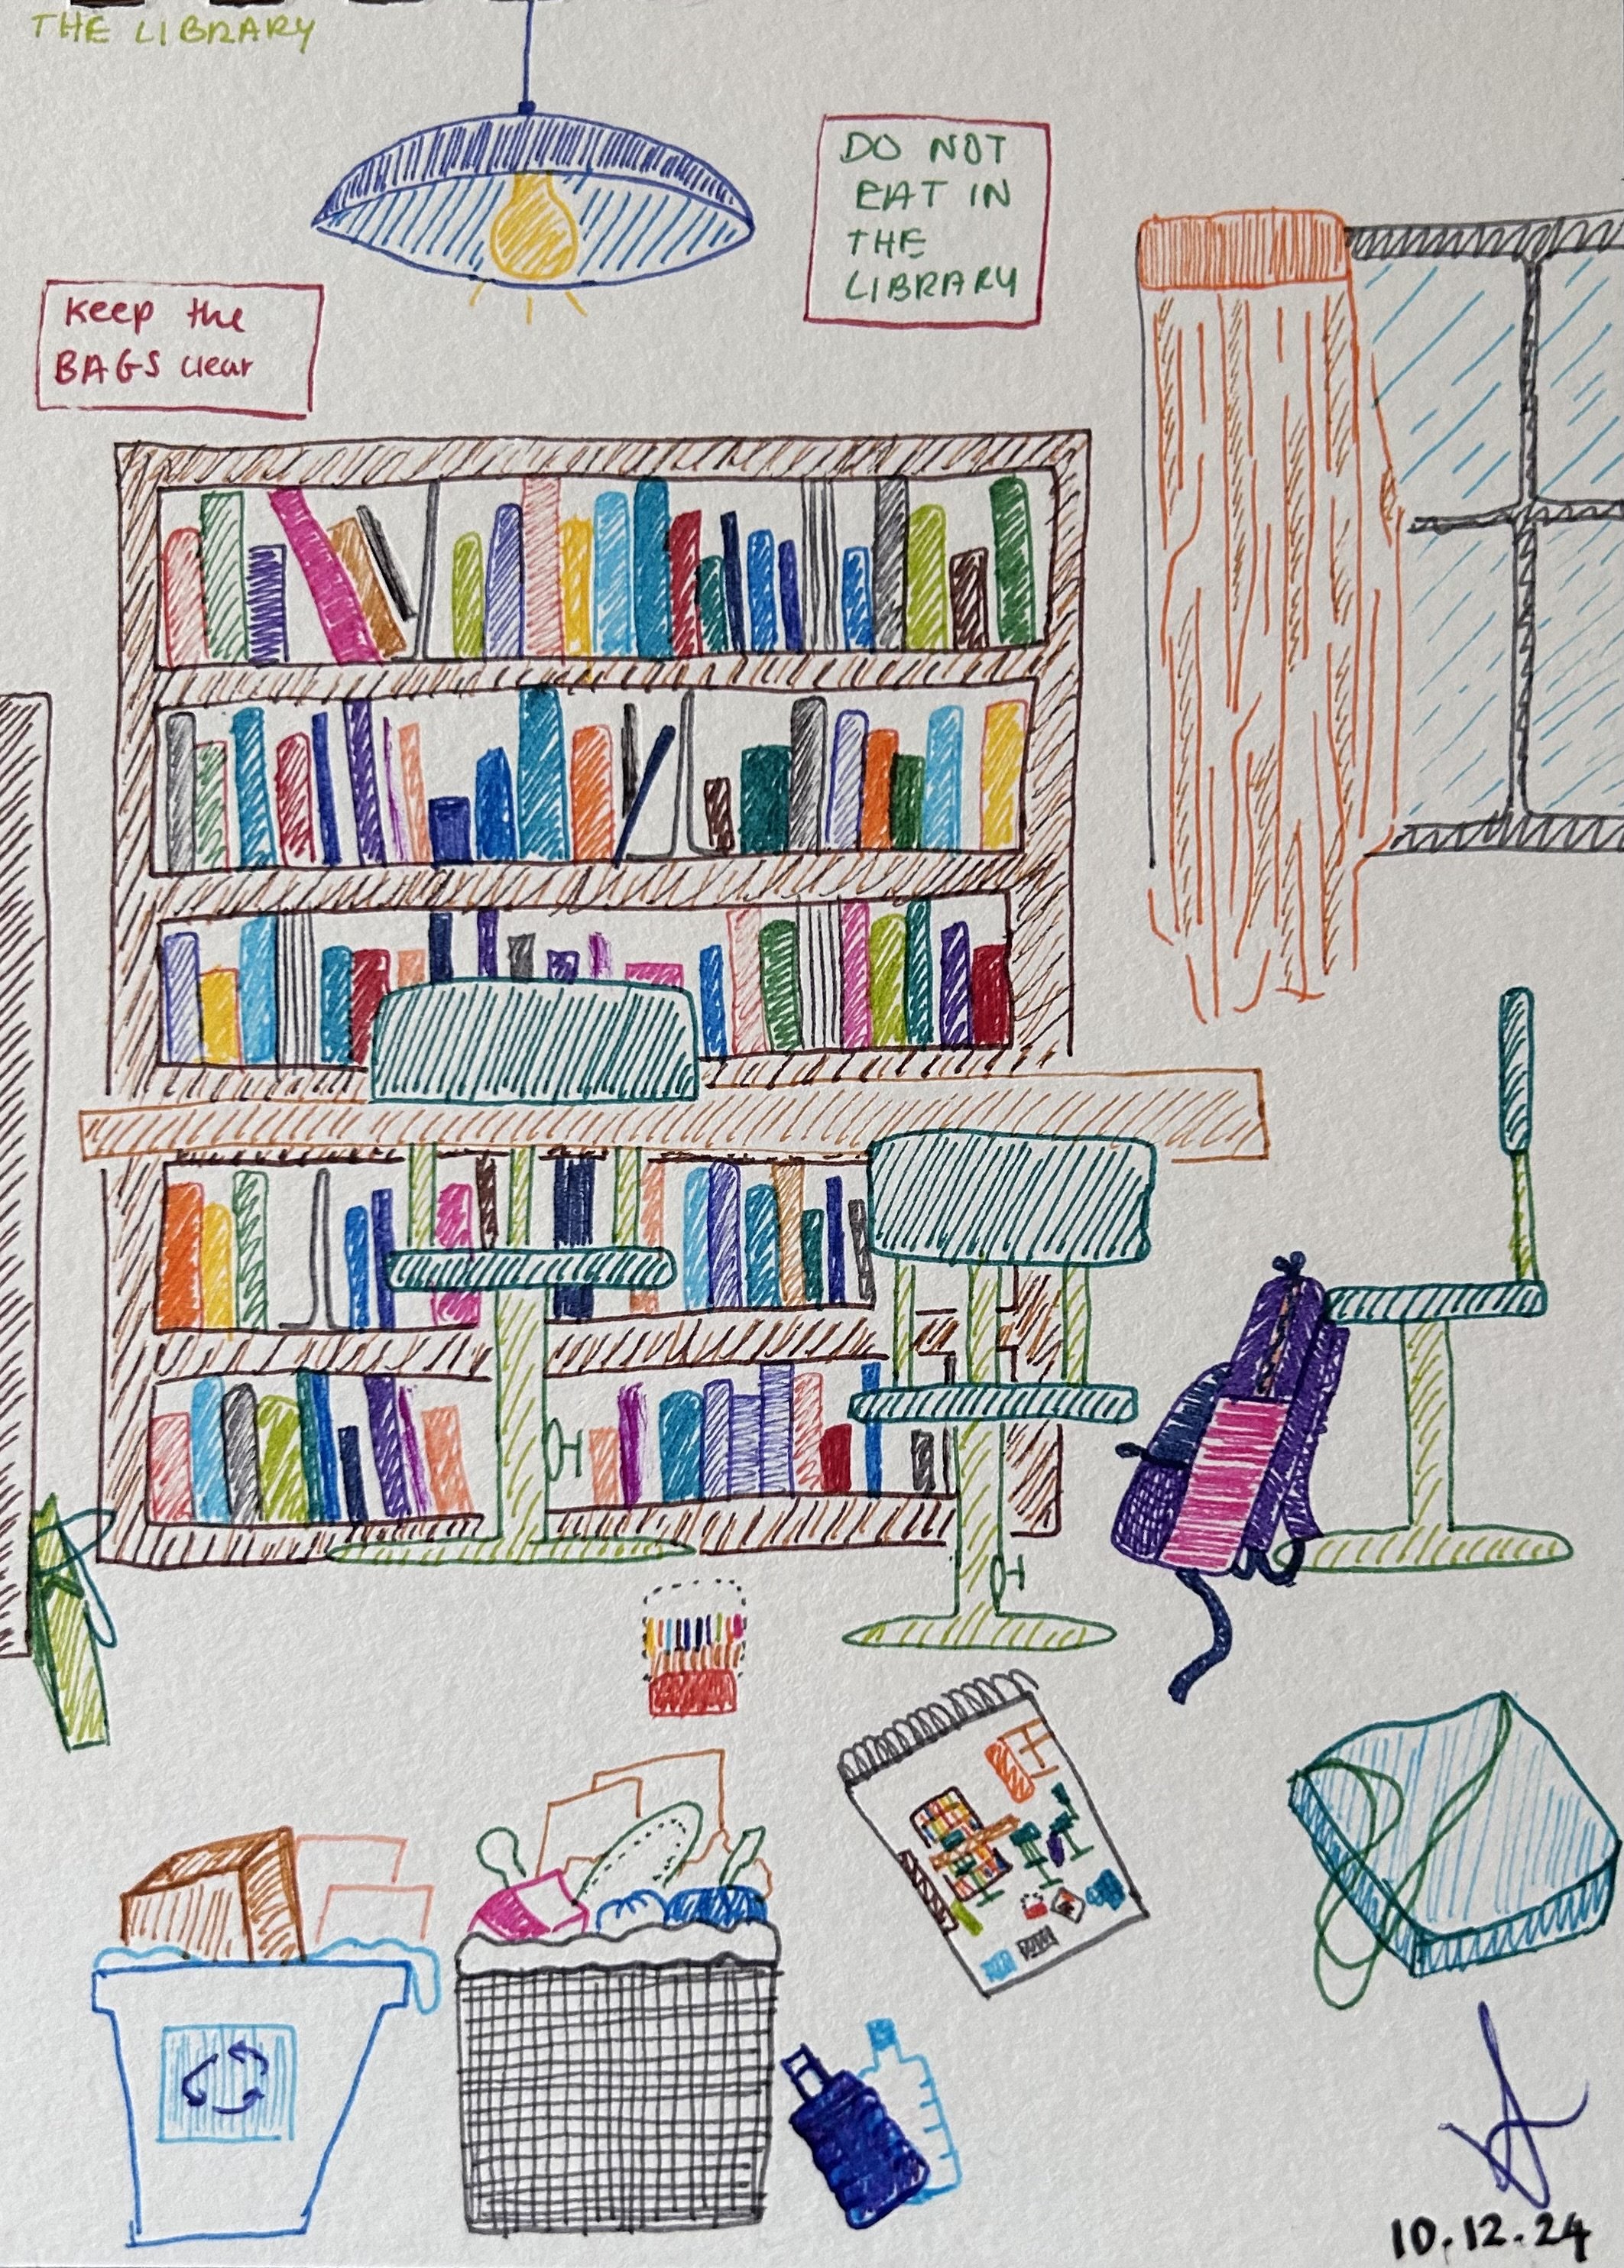 THE LIBRARY
DO NOT
EAT IN
THE
LIBRARY
Keep the
BAGS clear
10.12.24